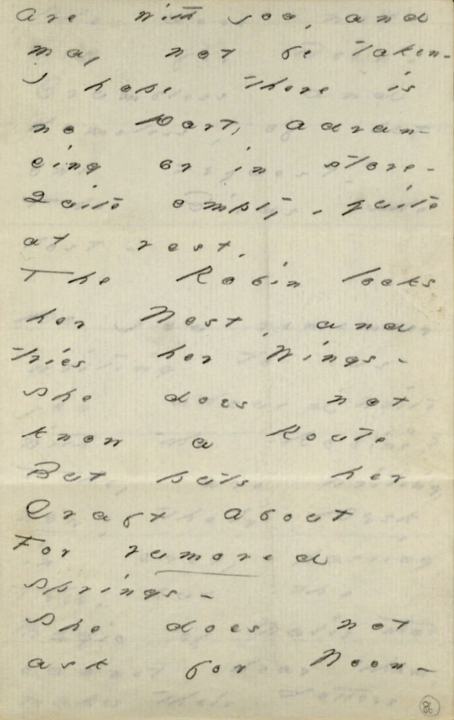 are with you, and
may not be taken -
I hope there is
no Dart, advan-
cing or in store -
Quite empty, quite
at rest,
The Robin locks
her Nest, and
tries her Wings -
She does not
know a Route
But puts her
Craft about
For rumored
Springs -
She does not
ask for Noon -